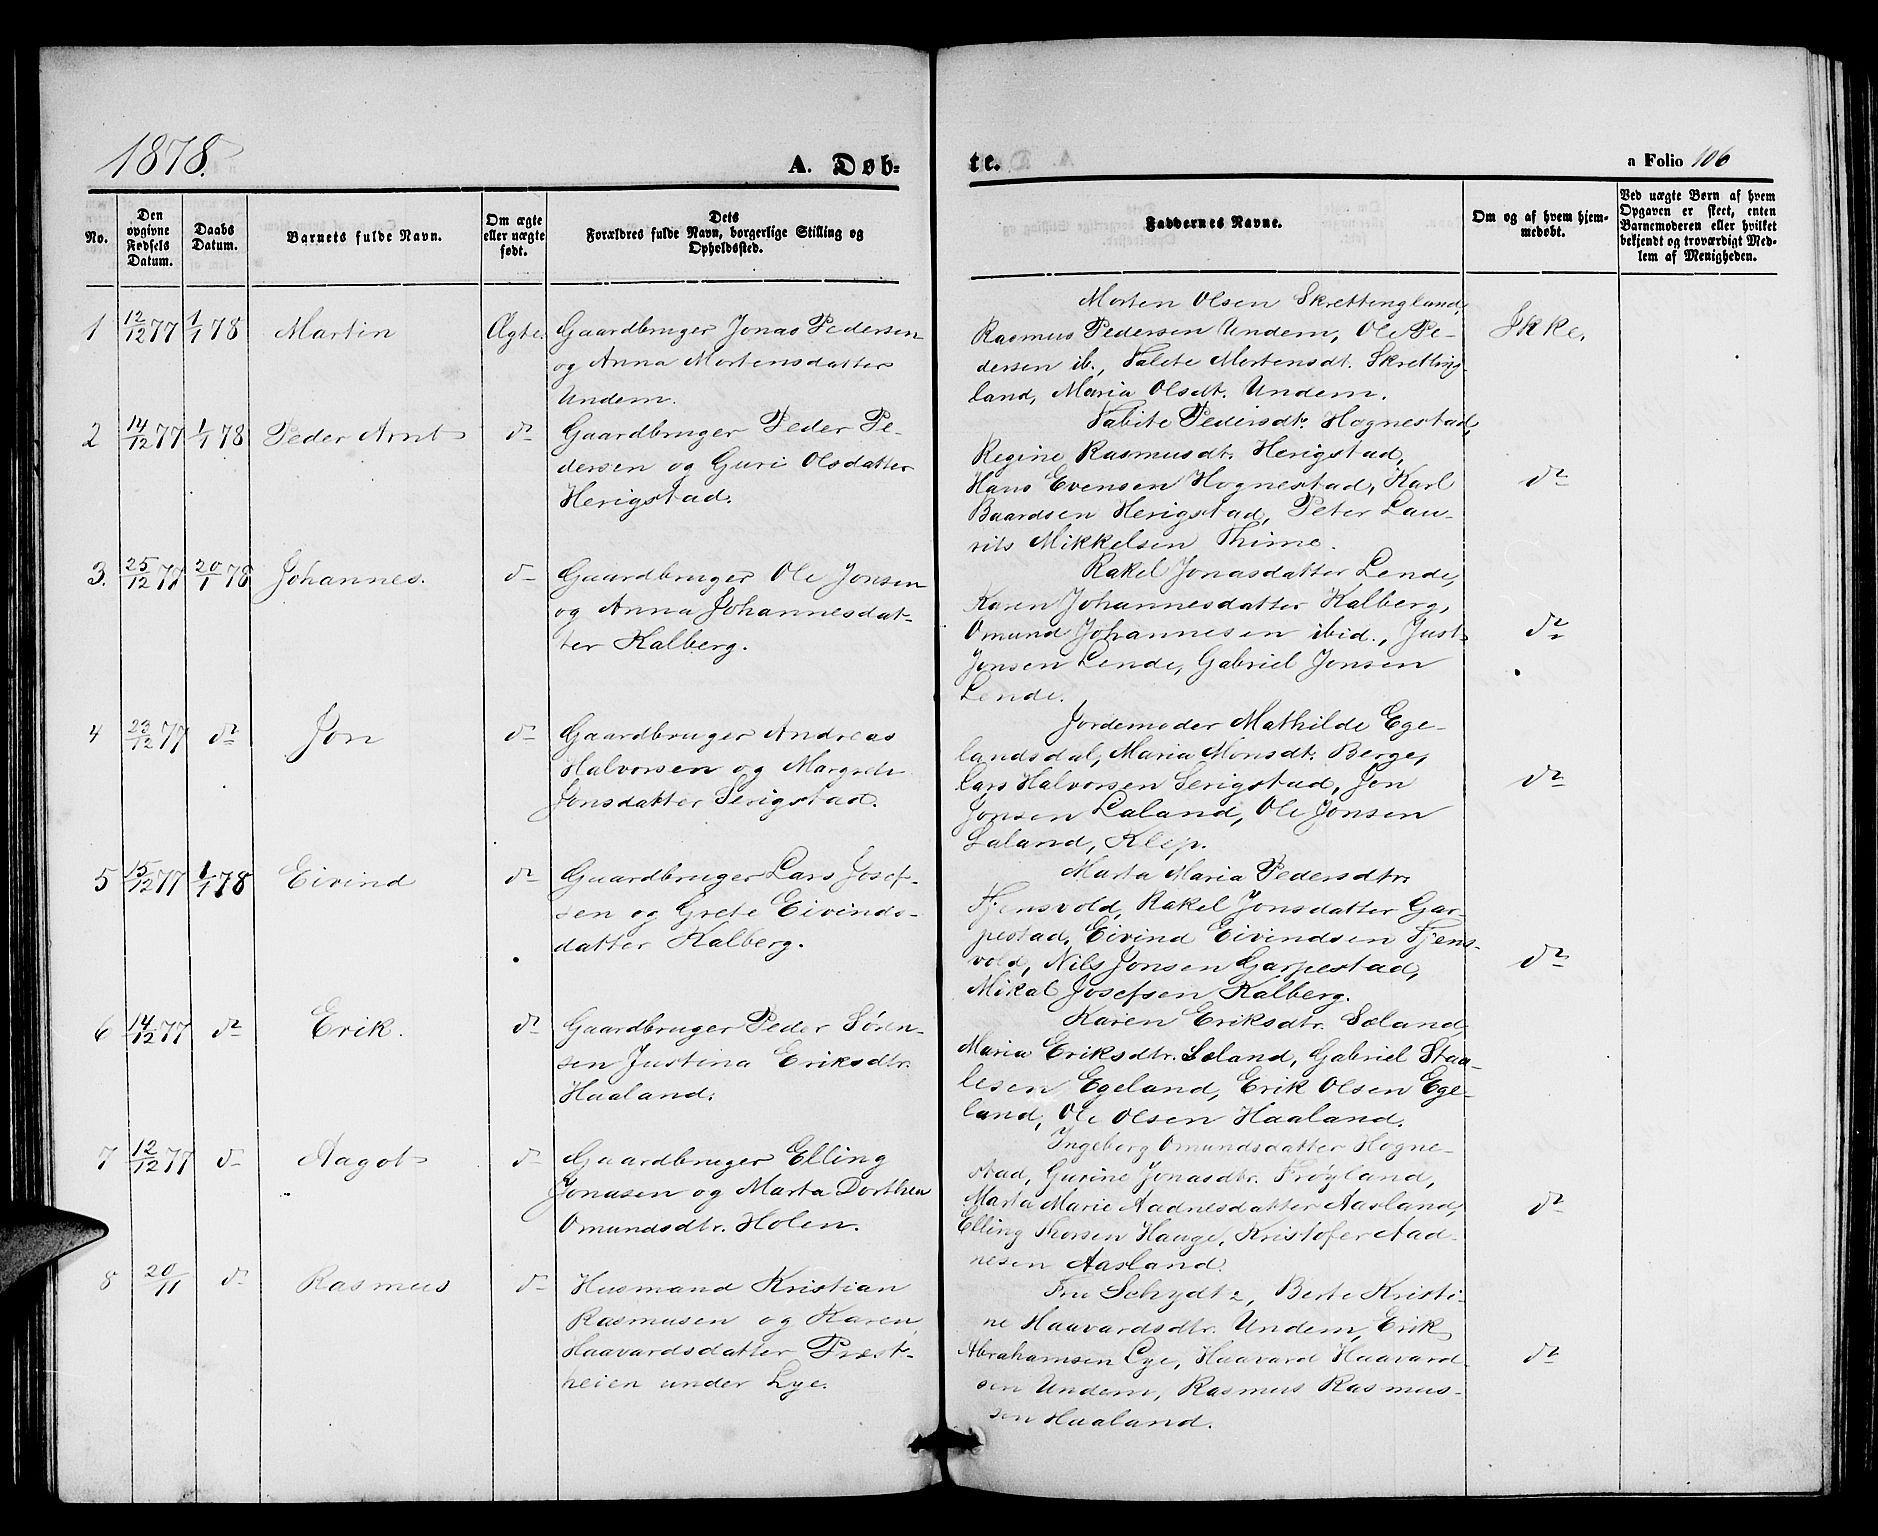 1878.
A. Døb=
te.
a Folio 106
No.
Den opgivne Fødsels Datum.
Daabs Datum.
Barnets fulde Navn.
Om ægte eller uægte født.
Dets Forældres fulde Navn, borgerlige Stilling og Opholdssted.
Faddernes Navne.
Om og af hvem hjem-medøbt.
Ved uægte Børn af hvem Opgaven er skeet, enten Barnemoderen eller hvilket bekjendt og troværdigt Med-lem af Menigheden.
1 12/12 77 1/1 78 Martin Ægte. Gaardbruger Jonas Pedersen
og Anna Mortensdatter
Undem.
Morten Olsen Skrettingland,
Rasmus Pedersen Undem, Ole Pe-
dersen ib., Talete Mortensdt. Skretting-
land, Maria Olsdt. Undem.
Ikke.
2 14/12 77 1/1 78 Peder Arnt do Gaardbruger Peder Pe-
dersen og Guri Olsdatter
Herigstad.
Tabite Pedersdt. Hognestad,
Regine Rasmusdt. Herigstad,
Hans Evensen Hognestad, Karl
Baardsen Herigstad, Peter Lau-
rits Mikkelsen Thime.
do
3. 25/12 77 20/1 78 Johannes. do Gaardbruger Ole Jonsen
og Anna Johannesdat-
ter Kalberg.
Rakel Jonasdatter Lende,
Karen Johannesdatter Kalberg,
Omund Johannesen ibid., Just
Jonsen Lende, Gabriel Jonsen
Lende.
do
4 23/12 77 do Jon do Gaardbruger Andreas
Halvorsen og Margrete
Jonsdatter Serigstad.
Jordemoder Mathilde Ege-
landsdal, Maria Monsdt. Berge,
Lars Halvorsen Serigstad, Jon
Jonsen Laland, Ole Jonsen
Laland, Klep.
do
5 15/12 77 1/1 78 Eivind do Gaardbruger Lars Josef-
sen og Grete Eivinds-
datter Kalberg.
Marta Maria Pedersdtr.
Tjensvold, Rakel Jonsdatter Gar-
pestad, Eivind Eivindsen Tjens-
vold, Nils Jonsen Garpestad,
Mikal Josefsen Kalberg.
do
6 14/12 77 do Erik. do Gaardbruger Peder Søren-
sen Justina Eriksdtr.
Haaland.
Karen Eriksdtr. Sæland,
Maria Eriksdtr. Sæland, Gabriel Staa-
lesen Egeland, Erik Olsen Ege-
land, Ole Olsen Haaland.
7 12/12 77 do Aagot do Gaardbruger Elling
Jonasen og Marta Dorthea
Omundsdtr. Holen.
Ingeborg Omundsdatter Hogne-
stad, Gurine Jonasdtr. Frøyland,
Marta Marie Aadnesdatter Aasland,
Elling Thorsen Hauge, Kristofer Aad-
nesen Aasland.
do
8 20/11 do Rasmus do Husmand Kristian
Rasmusen og Karen
Haavardsdatter Præst-
heien under Lye.
Fru Schydtz, Berte Kristi-
ne Haavardsdtr. Undem, Erik
Abrahamsen Lye, Haavard Haavard-
sen Undem, Rasmus Rasmus-
sen Haaland.
do